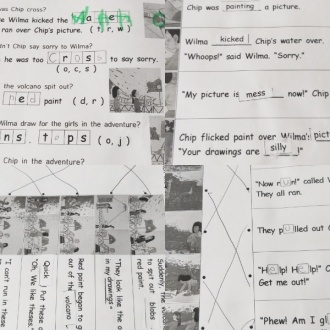 was Chip cross?
Wilma kicked the Water
ran over Chip's picture. ( t r, w )
dn't Chip say sorry to Wilma?
he was too Cross to say sorry.
( o, c, s )
the volcano spit out?
red paint ( d, r )
Wilma draw for the girls in the adventure?
ns. tops ( o, j )
Chip in the adventure?
Chip was painting a picture.
Wilma kicked Chip's water over.
"Whoops!" said Wilma. "Sorry."
"My picture is mess now!" Chip
Chip flicked paint over Wilma's pict
"Your drawings are silly !"
"I can't run in these
Quick! Put these
"Oh. We like these."
Red paint began to g
out of the volcano
"They look like the o
in my drawings."
Suddenly, the vol
to spit out blobs
red paint.
"Now run!" called W
They all ran.
They pulled out C
"Help! Help!" C
Get me out!"
"Phew! Am I gl